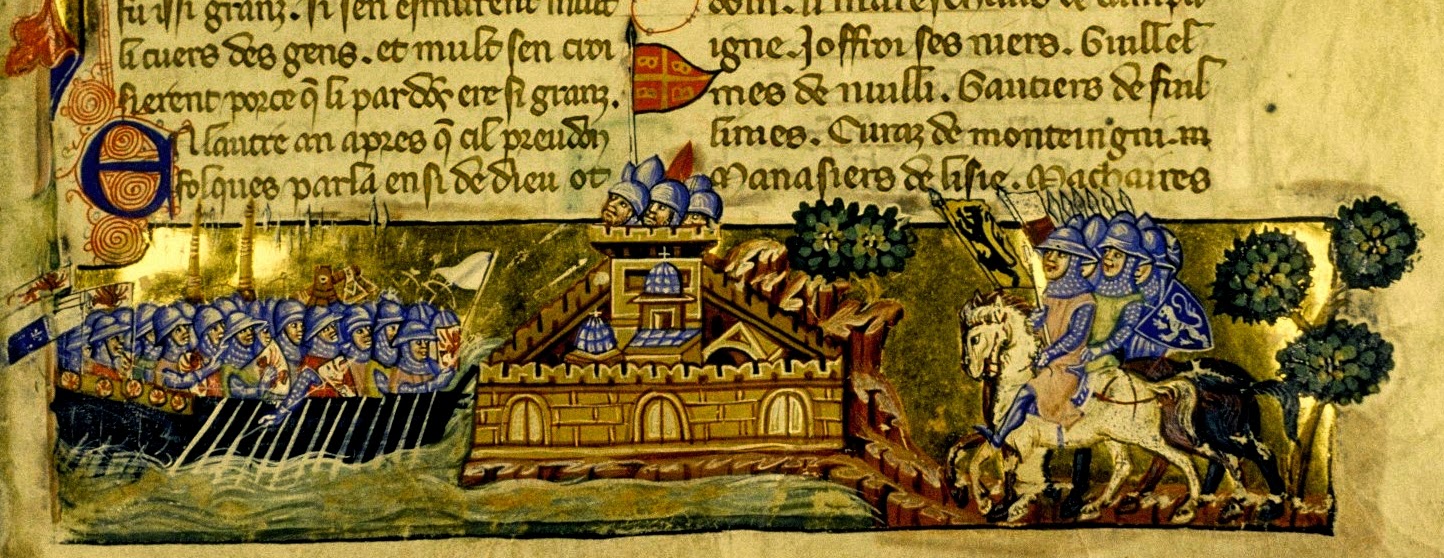 fu issi granz. si sen esmurent mult
li cuers des gens. et mult sen croi
sierent porce q̃ li pardõs ere si granz.
En lautre an apres q̃ cil preudõ
folques parla ensi de dieu ot
igne. Joffroi ses niers. Guillel
mes de nuilli. Gautiers de fuil
lines. Euraz de monteingni.
Manasiers de lisle. Machaires